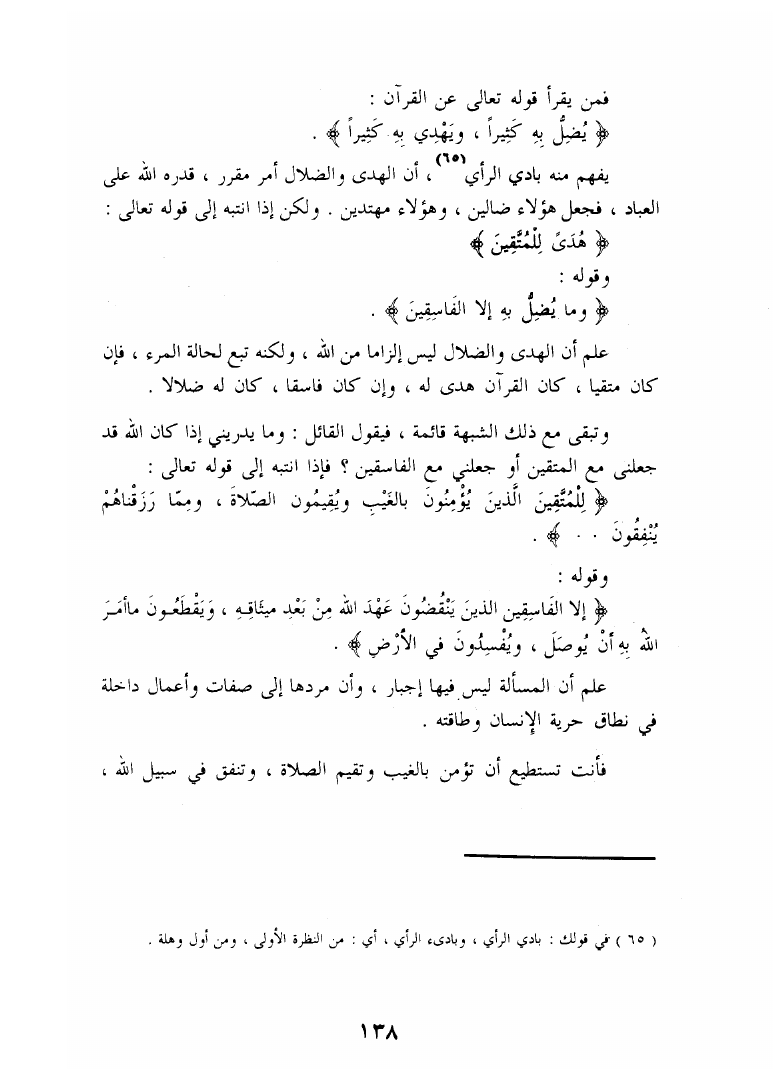 فمن يقرأ قوله تعالى عن القرآن :
﴿ يُضِلُّ بِهِ كَثِيراً ، ويَهْدِي بِهِ كَثِيراً ﴾ .
يفهم منه بادي الرأي(٦٥) ، أن الهدى والضلال أمر مقرر ، قدره الله على
العباد ، فجعل هؤلاء ضالين ، وهؤلاء مهتدين . ولكن إذا انتبه إلى قوله تعالى :
﴿ هُدَىً لِلْمُتَّقِينَ ﴾
وقوله :
﴿ وما يُضِلُّ بهِ إلا الفَاسِقِينَ ﴾ .
علم أن الهدى والضلال ليس إلزاما من الله ، ولكنه تبع لحالة المرء ، فإن
كان متقيا ، كان القرآن هدى له ، وإن كان فاسقا ، كان له ضلالا .
وتبقى مع ذلك الشبهة قائمة ، فيقول القائل : وما يدريني إذا كان الله قد
جعلنى مع المتقين أو جعلني مع الفاسقين ؟ فإذا انتبه إلى قوله تعالى :
﴿ لِلْمُتَّقِينَ الَّذينَ يُؤْمِنُونَ بالغَيْبِ ويُقِيمُون الصّلاةَ ، ومِمّا رَزَقْناهُمْ
يُنْفِقُونَ . . ﴾ .
وقوله :
﴿ إلا الفَاسِقِين الذينَ يَنْقُضُونَ عَهْدَ الله مِنْ بَعْدِ ميثَاقِهِ ، وَيَقْطَعُونَ ماأمَرَ
اللهُ بِهِ أنْ يُوصَلَ ، ويُفْسِدُونَ في الأرْضِ ﴾ .
علم أن المسألة ليس فيها إجبار ، وأن مردها إلى صفات وأعمال داخلة
في نطاق حرية الإنسان وطاقته .
فأنت تستطيع أن تؤمن بالغيب وتقيم الصلاة ، وتنفق في سبيل الله ،
( ٦٥ ) في قولك : بادي الرأي ، وبادىء الرأي ، أي : من النظرة الأولى ، ومن أول وهلة .
١٣٨